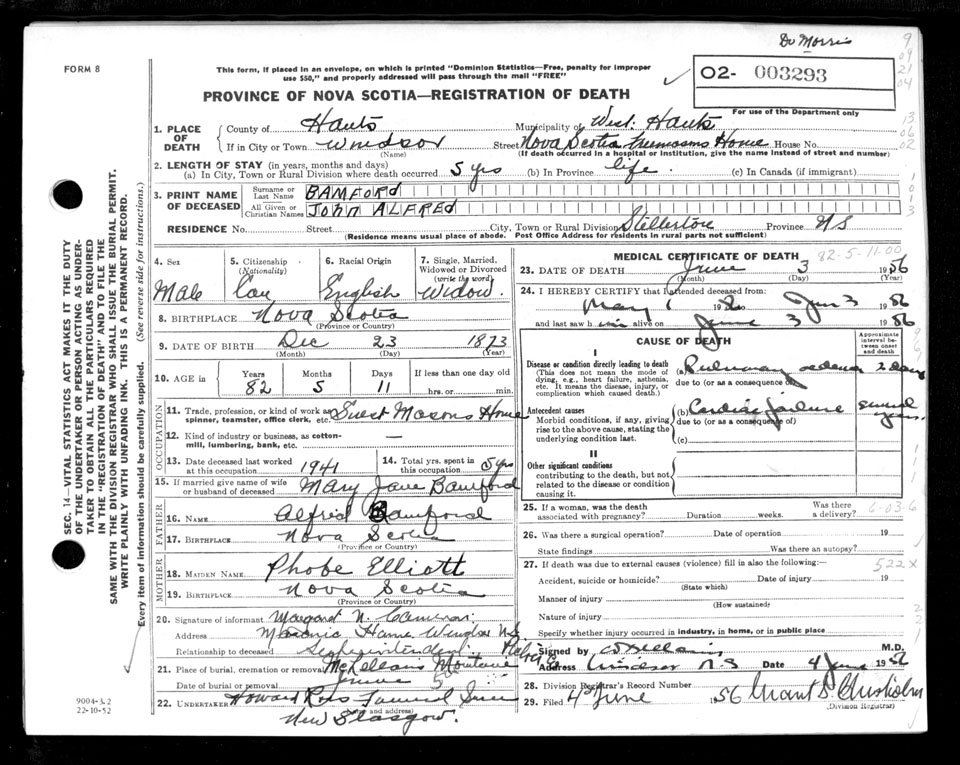 Dr Morris
FORM 8
This form, if placed in an envelope, on which is printed "Dominion Statistics—Free, penalty for improper
use $50," and properly addressed will pass through the mail "FREE"
PROVINCE OF NOVA SCOTIA—REGISTRATION OF DEATH
02- 003293
For use of the Department only
1. PLACE OF DEATH
County of Hants Municipality of West Hants
If in City or Town Windsor Street Nova Scotia Freemasons Home House No.
(Name) (If death occurred in a hospital or institution, give the name instead of street and number)
2. LENGTH OF STAY (in years, months and days)
(a) In City, Town or Rural Division where death occurred 5 yrs (b) In Province life. (c) In Canada (if immigrant)
3. PRINT NAME OF DECEASED
Surname or Last Name BAMFORD
All Given or Christian Names JOHN ALFRED
RESIDENCE No. Street City, Town or Rural Division Stellerton Province NS
(Residence means usual place of abode. Post Office Address for residents in rural parts not sufficient)
4. Sex Male
5. Citizenship (Nationality) Can
6. Racial Origin English
7. Single, Married, Widowed or Divorced (write the word) Widow
8. BIRTHPLACE Nova Scotia
(Province or Country)
9. DATE OF BIRTH Dec 23 1873
(Month) (Day) (Year)
10. AGE in Years 82 Months 5 Days 11 If less than one day
hrs. or min.
OCCUPATION
11. Trade, profession or kind of work as spinner, teamster, office clerk, etc. Guest Masons Home
12. Kind of industry or business, as cotton-mill, lumbering, bank, etc. —
13. Date deceased last worked at this occupation 1941
14. Total yrs. spent in this occupation 5 yrs
15. If married give name of wife or husband of deceased Mary Jane Bamford
FATHER
16. NAME Alfred Bamford
17. BIRTHPLACE Nova Scotia
(Province or Country)
MOTHER
18. MAIDEN NAME Phobe Elliott
19. BIRTHPLACE Nova Scotia
(Province or Country)
20. Signature of informant Margaret N. Cameron
Address Masonic Home Windsor N.S
Relationship to deceased Superintendent
21. Place of burial, cremation or removal McKellans Mountain
Date of burial or removal June 5
22. UNDERTAKER Howard Ross Funeral Service
(Name and address)
New Glasgow.
MEDICAL CERTIFICATE OF DEATH
82-5-11-00
23. DATE OF DEATH June 3 1956
(Month) (Day) (Year)
24. I HEREBY CERTIFY that I attended deceased from:
May 1 1956 to Jun 3 1956
and last saw him alive on June 3 1956
CAUSE OF DEATH
Approximate interval between onset and death
I
Disease or condition directly leading to death
(This does not mean the mode of dying, e.g., heart failure, asthenia, etc. It means the disease, injury, or complication which caused death.)
(a) Pulmonary oedema 2 days
due to (or as a consequence of)
Antecedent causes
Morbid conditions, if any, giving rise to the above cause, stating the underlying condition last.
(b) Cardiac failure several years.
due to (or as a consequence of)
(c)
II
Other significant conditions
contributing to the death, but not related to the disease or condition causing it.
25. If a woman, was the death associated with pregnancy? Duration weeks. Was there a delivery?
26. Was there a surgical operation? Date of operation 19
State findings Was there an autopsy?
27. If death was due to external causes (violence) fill in also the following:—
522X
Accident, suicide or homicide? Date of injury 19
(State which)
Manner of injury
(How sustained)
Nature of injury
Specify whether injury occurred in industry, in home, or in public place
Signed by M.D.
Address Windsor N S Date 4 June 1956
28. Division Registrar's Record Number
29. Filed 4th June 1956 Grant S Chisholm
(Division Registrar)
SEC. 14—VITAL STATISTICS ACT MAKES IT THE DUTY
OF THE UNDERTAKER OR PERSON ACTING AS UNDER-
TAKER TO OBTAIN ALL THE PARTICULARS REQUIRED
IN THE "REGISTRATION OF DEATH" AND TO FILE THE
SAME WITH THE DIVISION REGISTRAR WHO SHALL ISSUE THE BURIAL PERMIT.
WRITE PLAINLY WITH UNFADING INK. THIS IS A PERMANENT RECORD.
Every item of information should be carefully supplied. (See reverse side for instructions.)
22-10-52